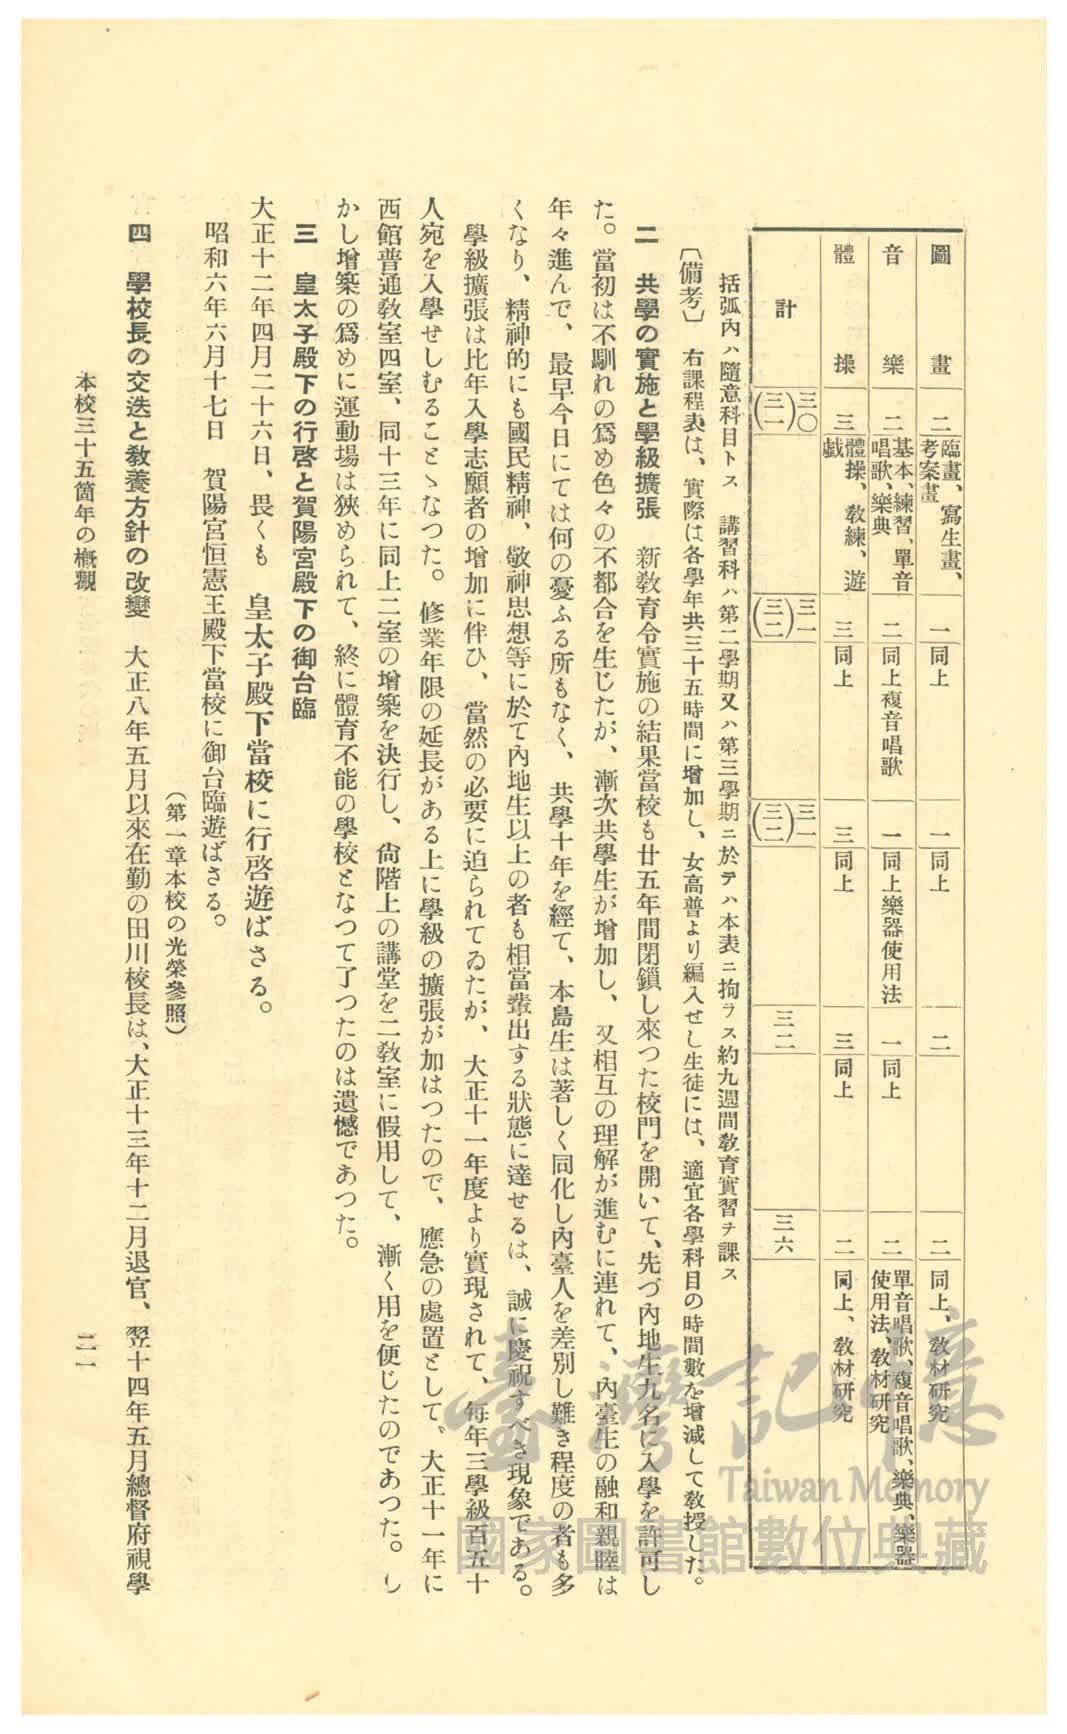 圖畫 二 臨畫、寫生畫、考案畫 一 同上 一 同上 二 二 同上、教材研究
音樂 二 基本、練習、單音唱歌、樂典 二 同上複音唱歌 一 同上樂器使用法 一 同上 二 單音唱歌、複音唱歌、樂典、樂器使用法、教材研究
體操 三 體操、教練、遊戲 三 同上 三 同上 三 同上 二 同上、教材研究
計 三〇(三二) 三一(三二) 三一(三二) 三二 三六
括弧內ハ隨意科目トス 講習科ハ第二學期又ハ第三學期ニ於テハ本表ニ拘ラス約九週間教育實習ヲ課ス
〔備考〕 右課程表は、實際は各學年共三十五時間に增加し、女高普より編入せし生徒には、適宜各學科目の時間數を增減して教授した。
二 共學の實施と學級擴張 新教育令實施の結果當校も廿五年間閉鎖し來つた校門を開いて、先づ內地生九名に入學を許可し
た。當初は不馴れの爲め色々の不都合を生じたが、漸次共學生が增加し、又相互の理解が進むに連れて、內臺生の融和親睦は
年々進んで、最早今日にては何の憂ふる所もなく、共學十年を經て、本島生は著しく同化し內臺人を差別し難き程度の者も多
くなり、精神的にも國民精神、敬神思想等に於て內地生以上の者も相當輩出する狀態に達せるは、誠に慶祝すべき現象である。
學級擴張は比年入學志願者の增加に伴ひ、當然の必要に迫られてゐたが、大正十一年度より實現されて、每年三學級百五十
人宛を入學せしむることゝなつた。修業年限の延長がある上に學級の擴張が加はつたので、應急の處置として、大正十一年に
西館普通教室四室、同十三年に同上二室の增築を決行し、尙階上の講堂を二教室に假用して、漸く用を便じたのであつた。し
かし增築の爲めに運動場は狹められて、終に體育不能の學校となつて了つたのは遺憾であつた。
三 皇太子殿下の行啓と賀陽宮殿下の御台臨
大正十二年四月二十六日、畏くも 皇太子殿下當校に行啓遊ばさる。
昭和六年六月十七日 賀陽宮恒憲王殿下當校に御台臨遊ばさる。
(第一章本校の光榮參照)
四 學校長の交迭と教養方針の改變 大正八年五月以來在勤の田川校長は、大正十三年十二月退官、翌十四年五月總督府視學
本校三十五箇年の槪觀
二一
臺灣記憶
Taiwan Memory
國家圖書館數位典藏